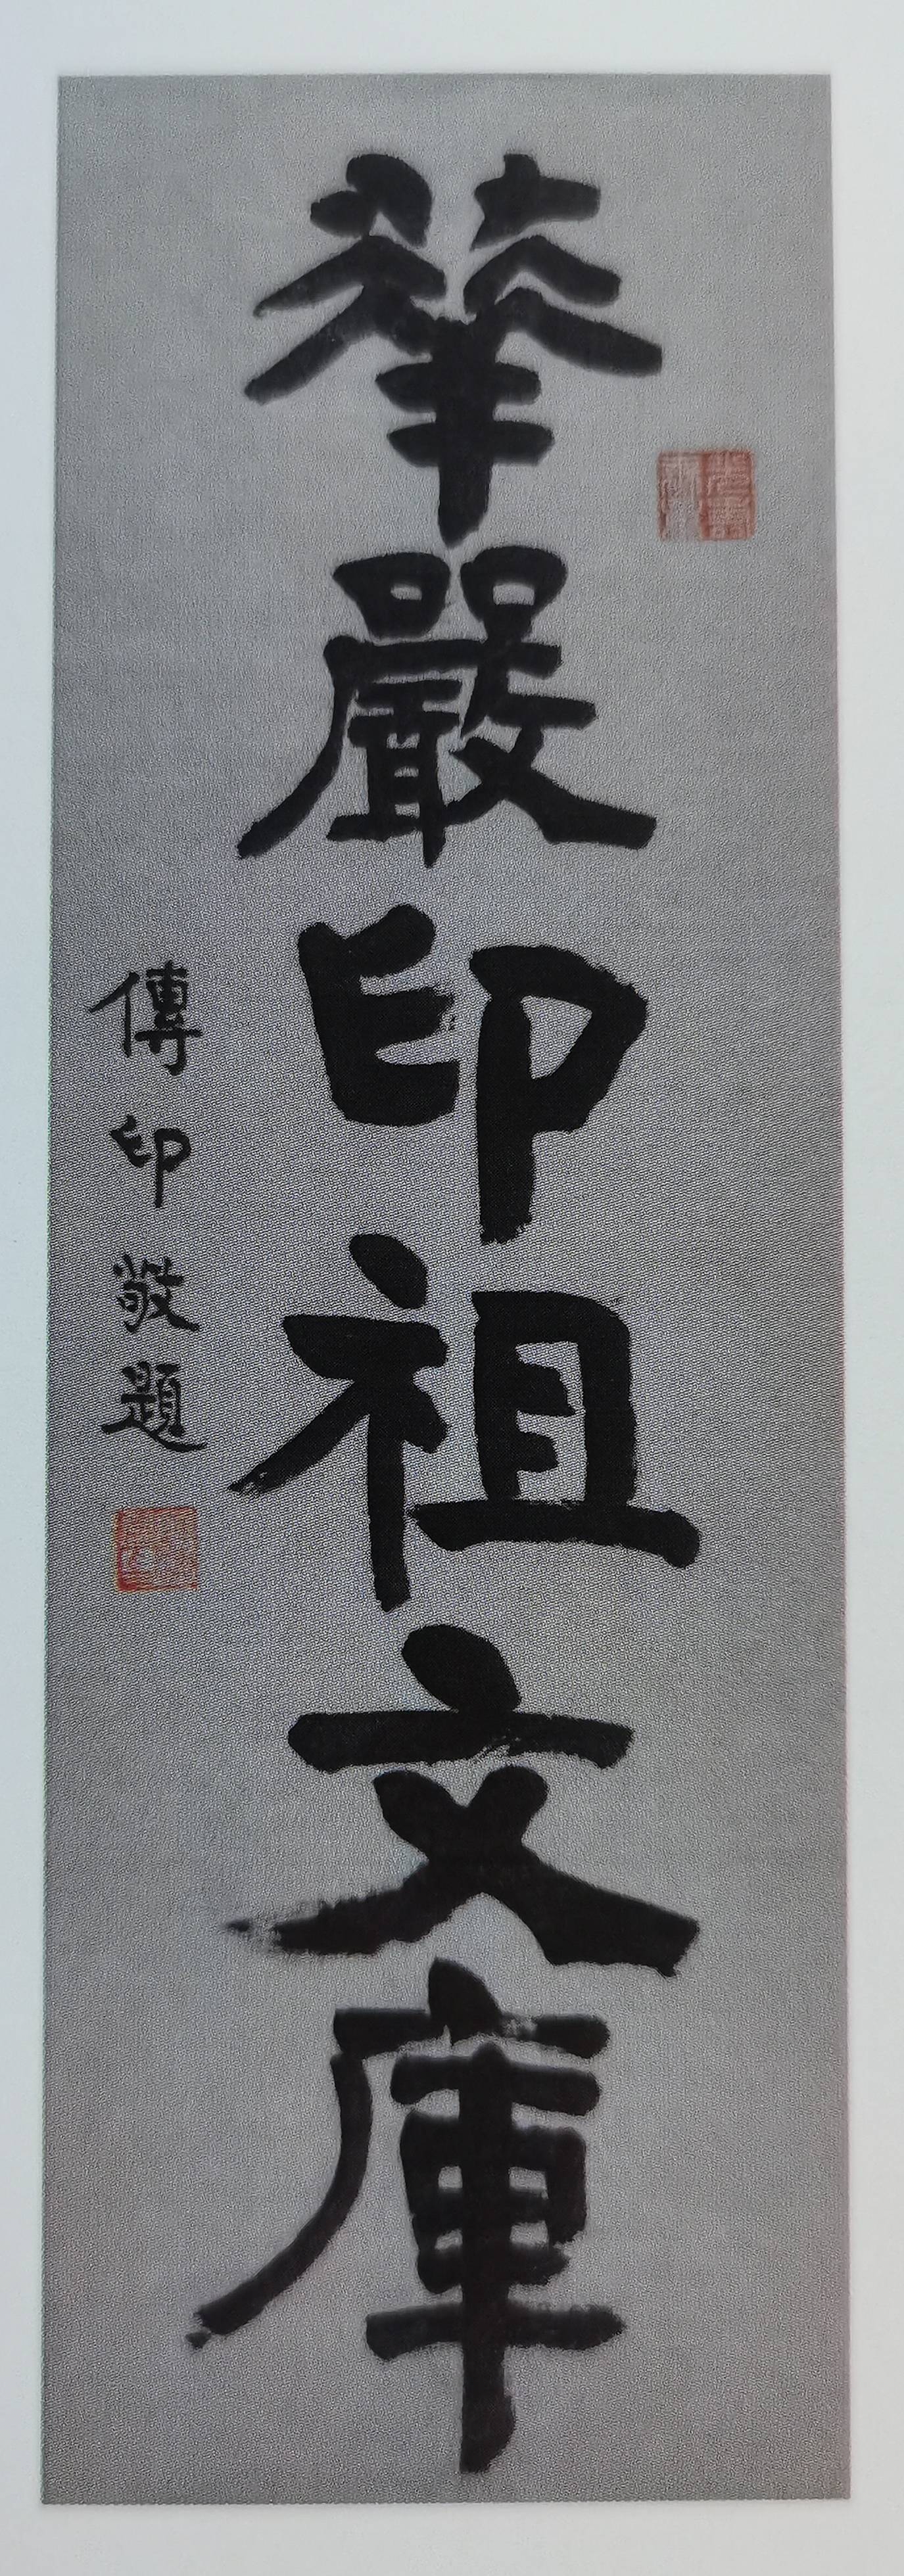 華嚴印祖文庫
傳印敬題